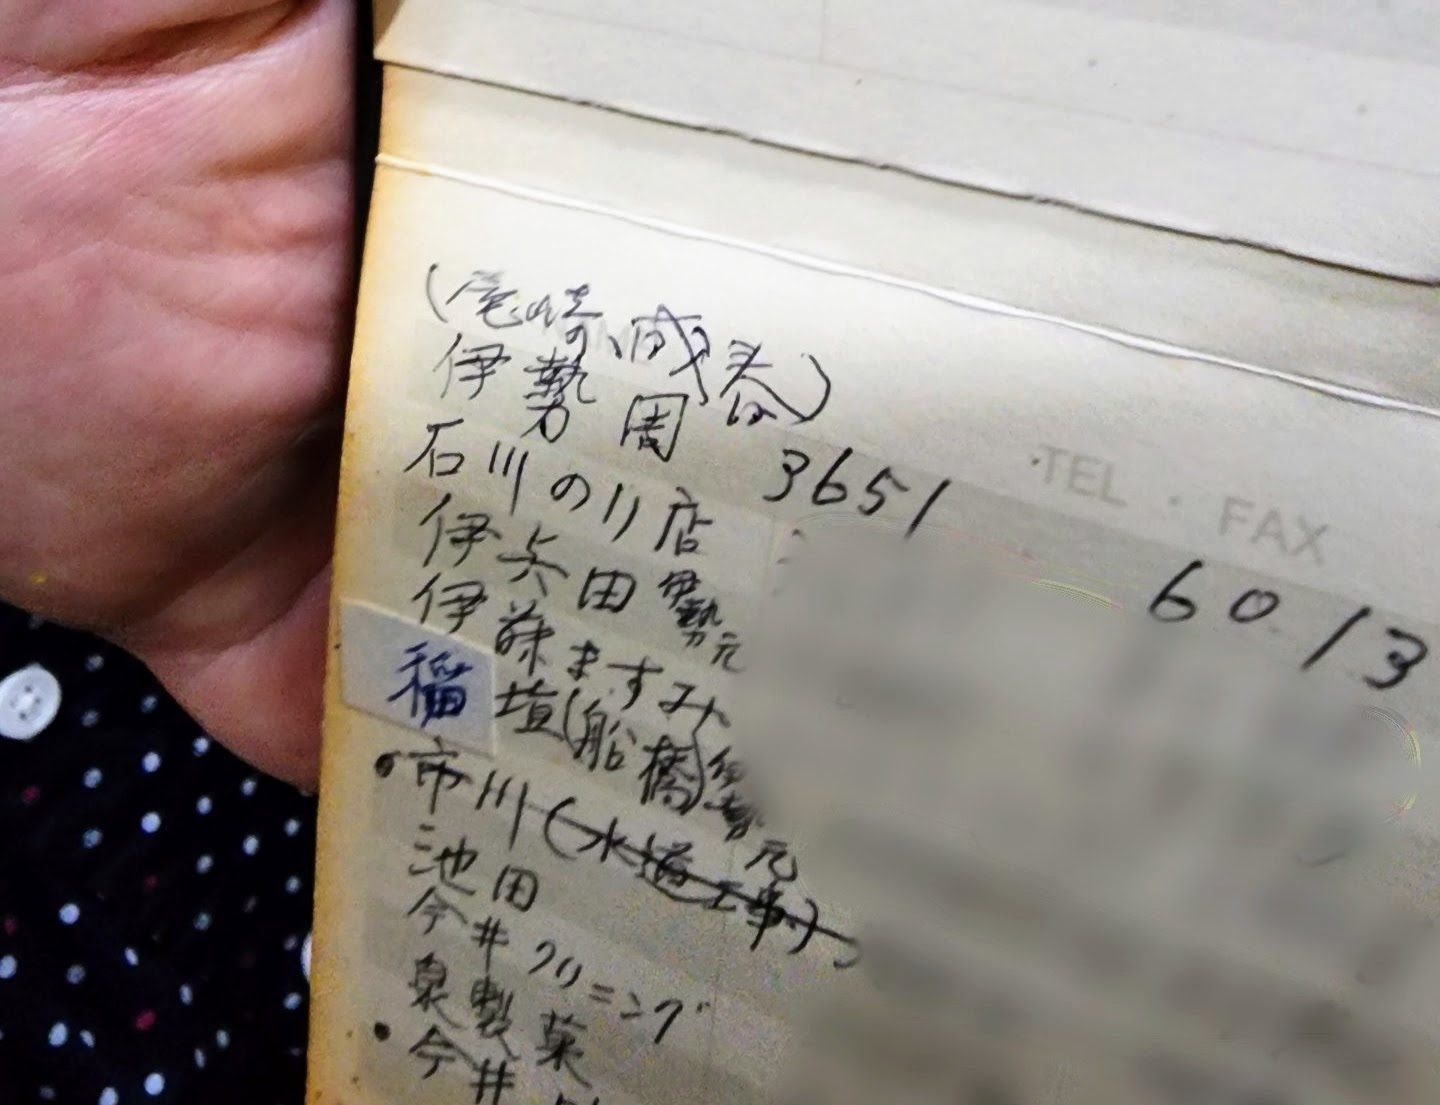 (尾崎、成春)
TEL・FAX
伊勢周 3651 6013
石川のり店
伊兵田 伊勢元
伊藤ますみ
稲垣(船橋)伊勢元
・市川(水道工事)
池田
今井クリーニング
泉製菓
・今井